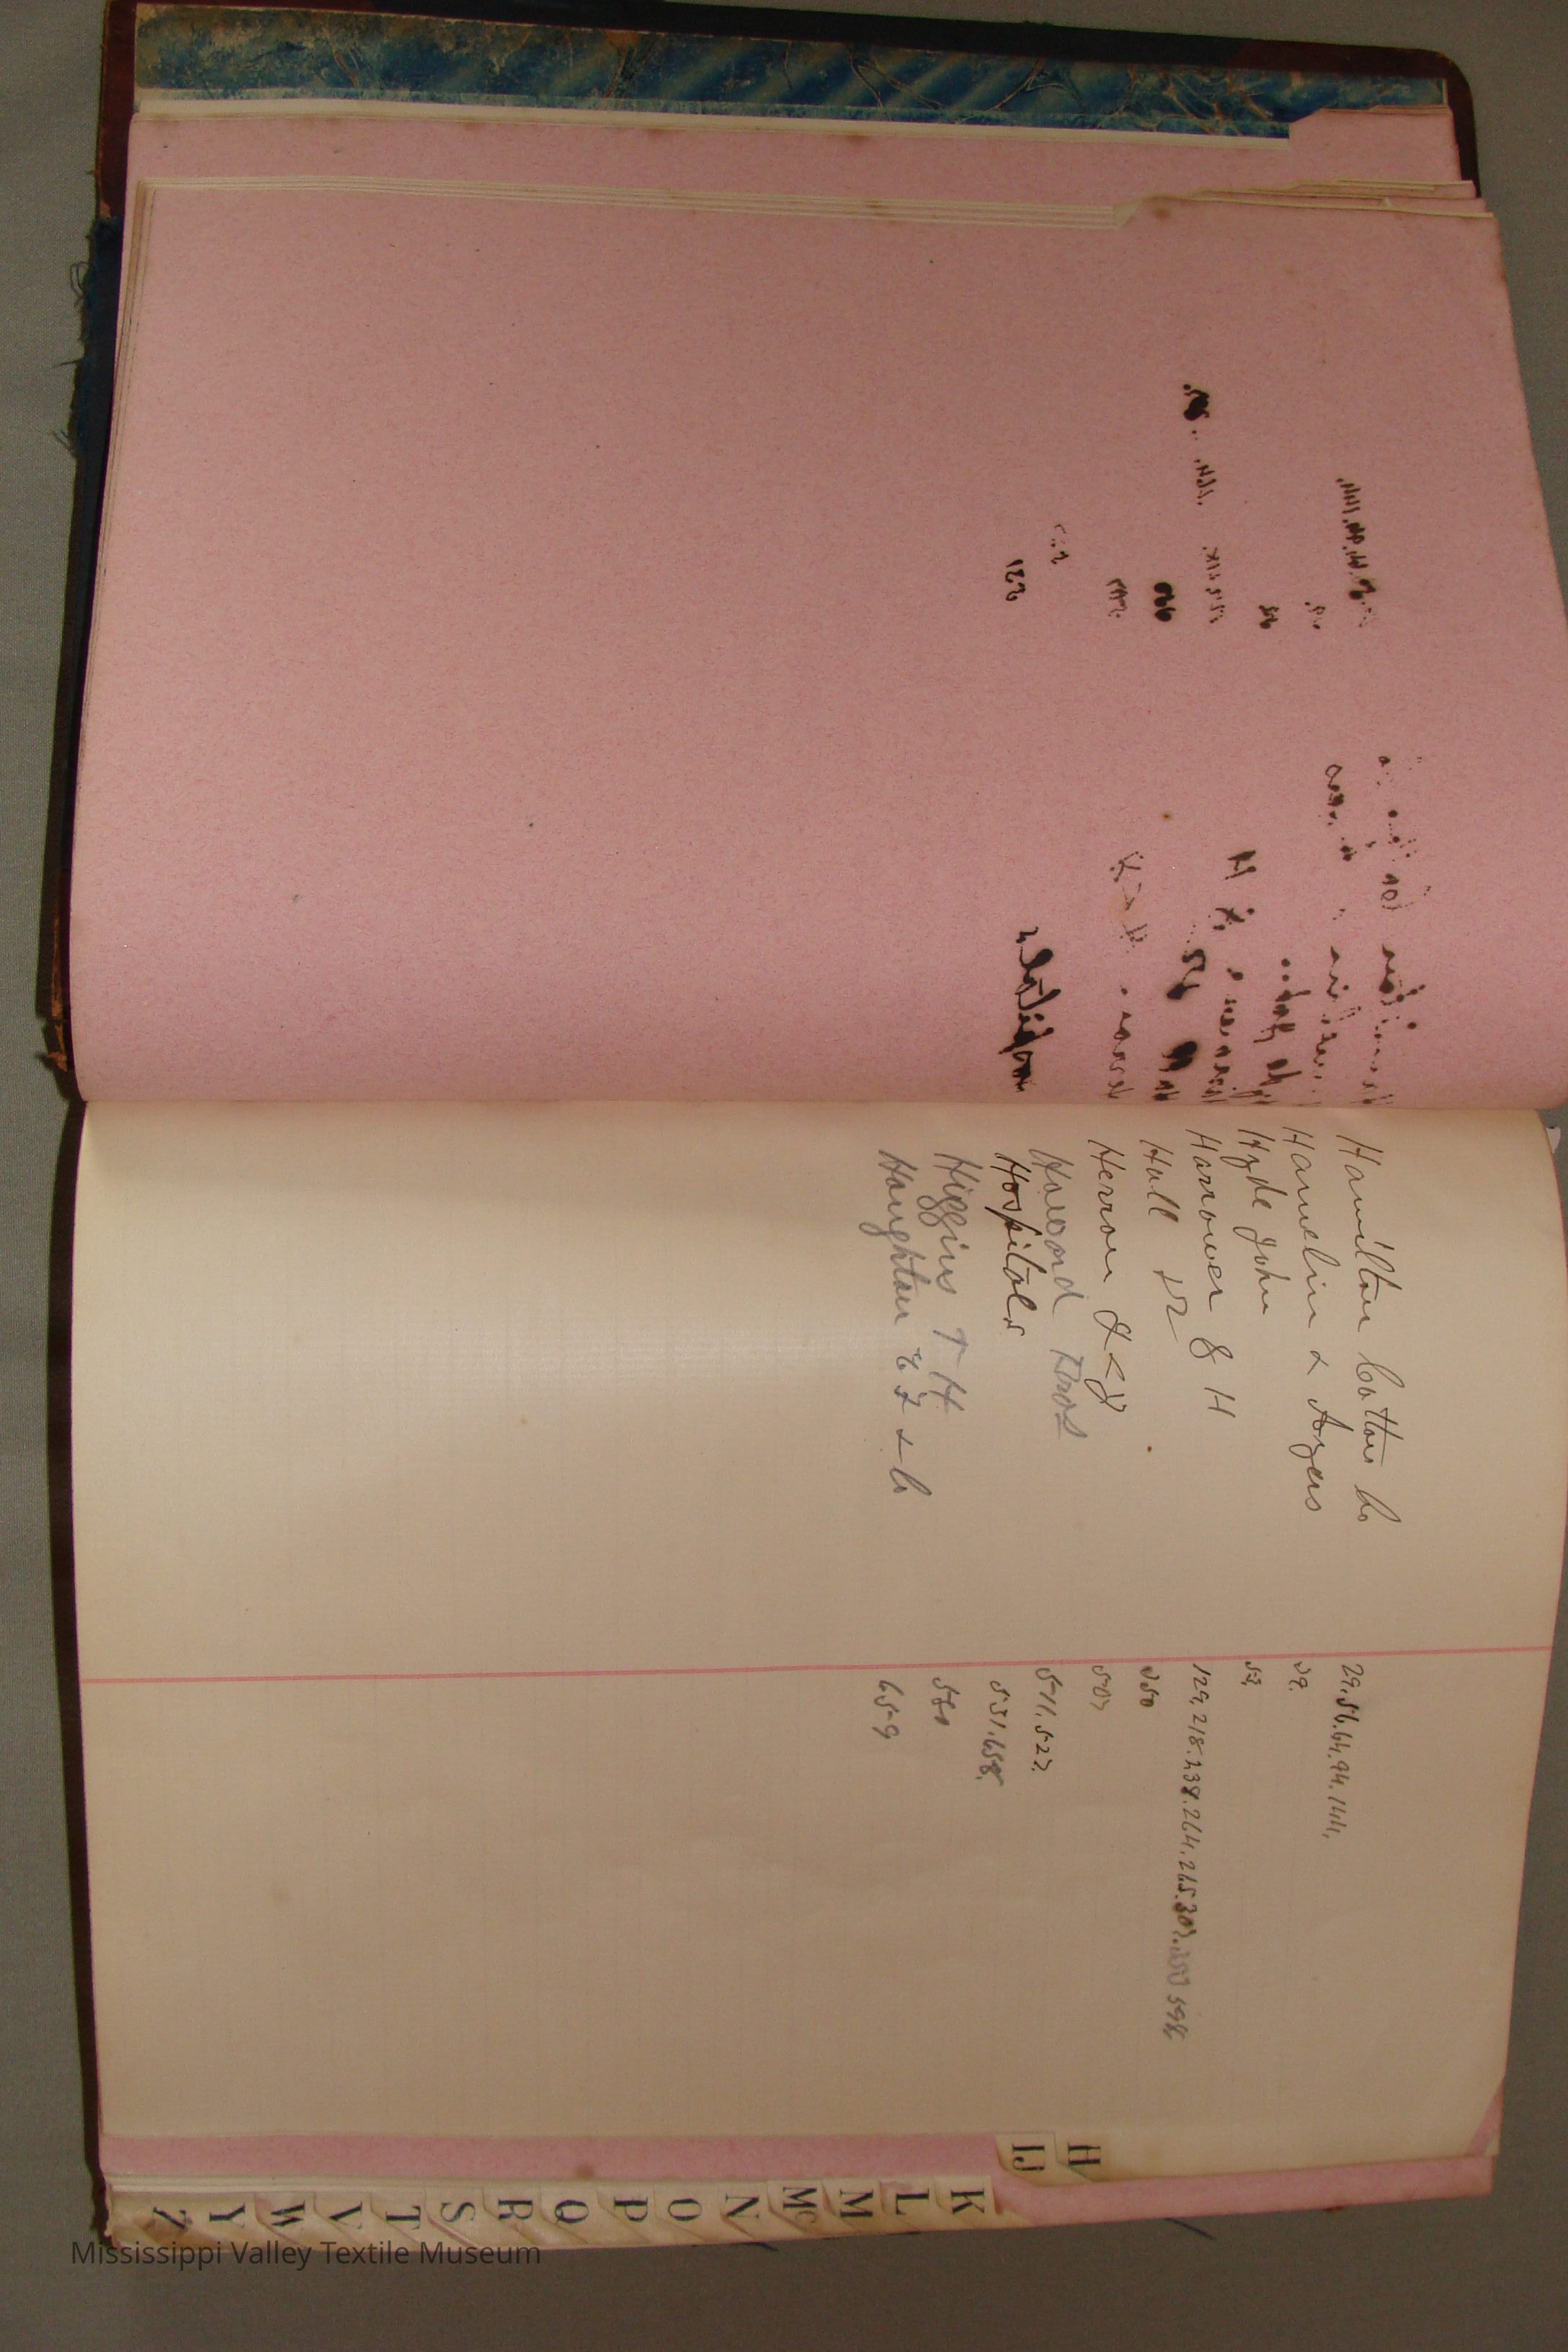 Hamilton Cotton Co 29.56.64.94.144.
Hamelin & Ayers 29.
Hyde John 53.
Harrower & H 129.218.238.264.265.307. 598
Hall 350
Herron 507
Howard Bros 511.527.
Hospitals 551.658.
Higgins T H 580
Houghton & Co 659
H
IJ
K
L
M
Mc
N
O
P
Q
R
S
T
V
W
Y
Z
Mississippi Valley Textile Museum